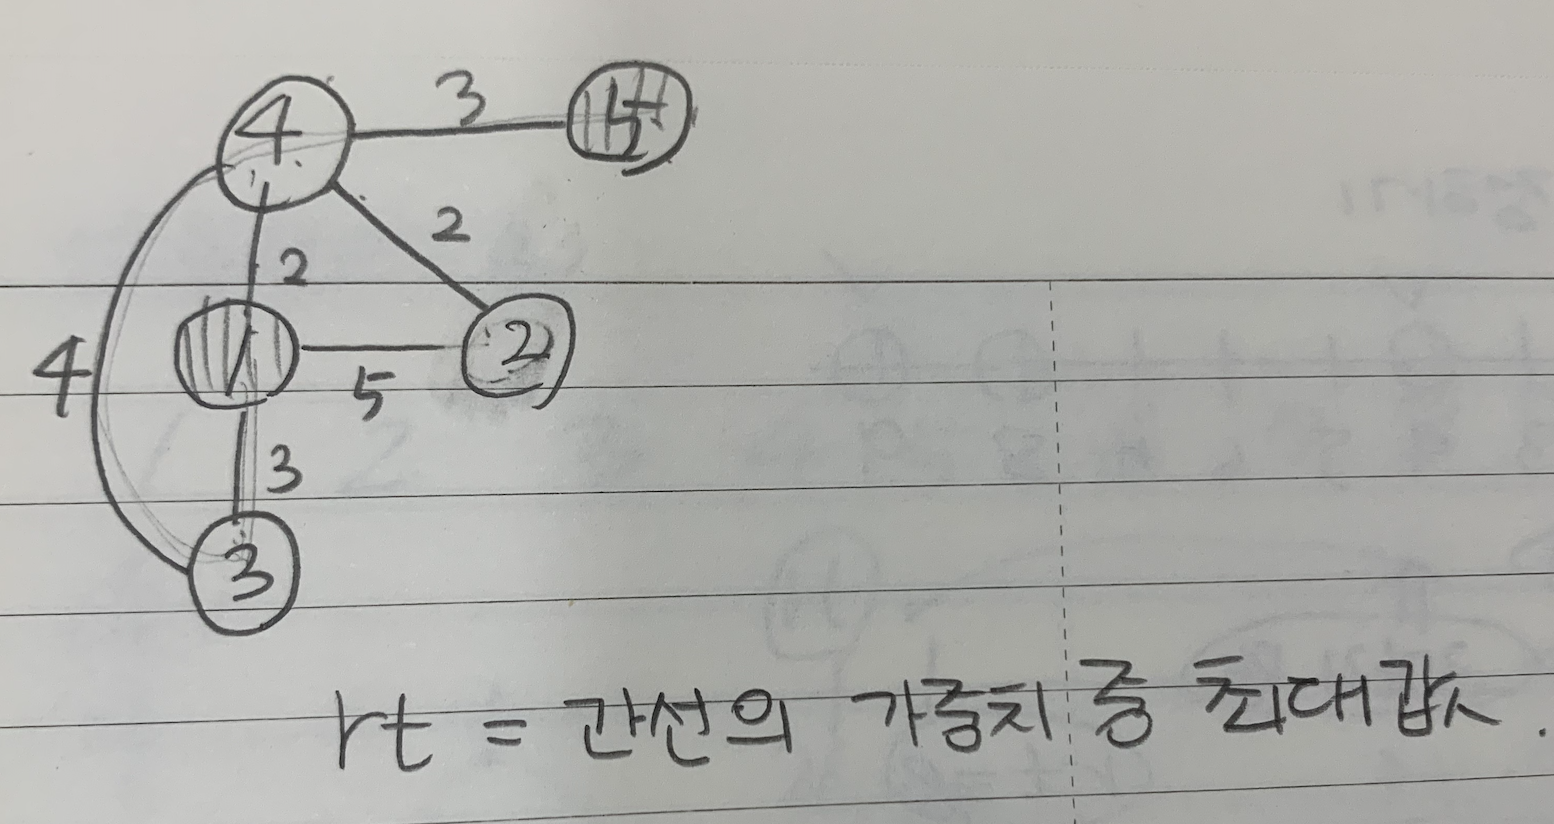 4 3 5
2
2
1 5 2
4
3
3
rt = 간선의 가중치 중 최대값.